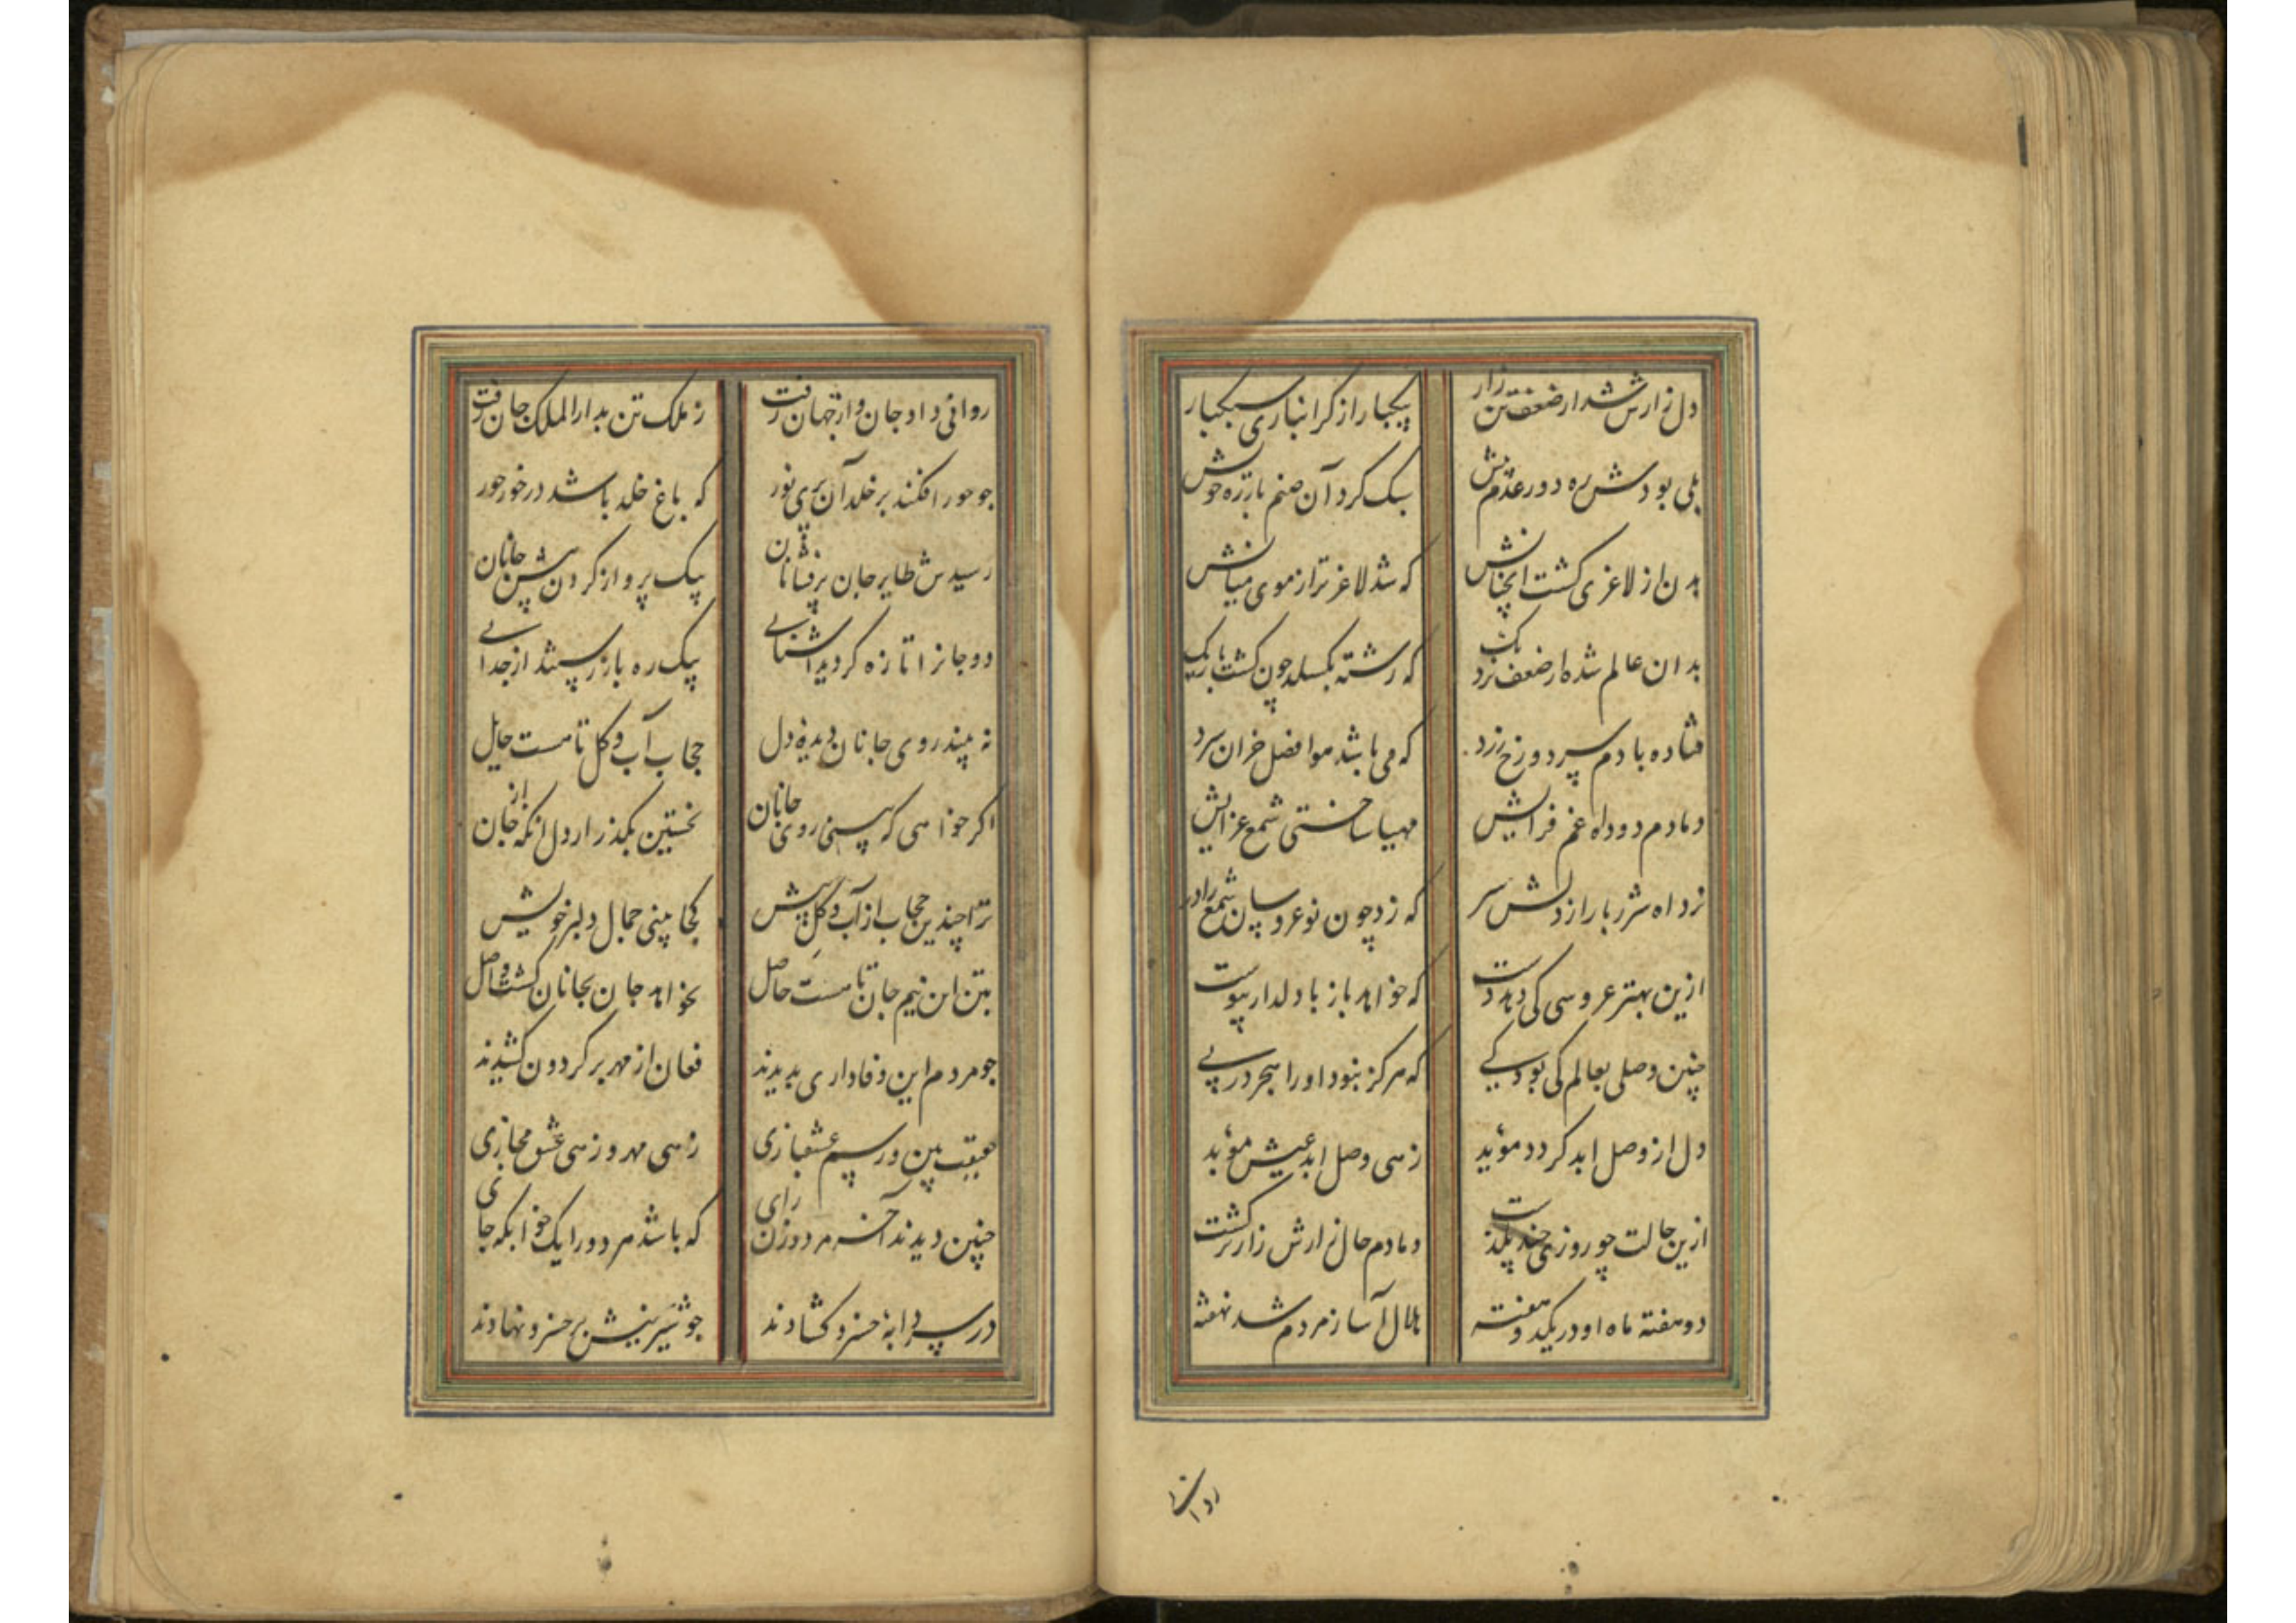 دل زارش شد از ضعف تن زار    بیکبار از کرانباری سبکبار
بلی بودش ره دور عدم پیش    سبک کرد آن صنم بار تره خویش
بدن از لاغری کشت انچنانش    که شد لاغر تر از موی میانش
بدان عالم شده از ضعف نزدیک    که رشته بکسلد چون کشت باریک
فتاده با دم سرد و رخ زرد    که می باشد هوا فصل خزان سرد
دمادم دود اه غم فزایش    مهیا ساختی شمع عزایش
زد اه شرر بار از دلش سر    که زد چون نوعروسان شمع را در
ازین بهتر عروسی کی دهد دست    که خواهد باز با دلدار پیوست
چنین وصلی بعالم کی بود کی    که هرکز نبود او را هجر در پی
دل از وصل ابد کردد مؤید    زهی وصل ابد عیش مؤبد
ازین حالت چو روزی چند بگذشت    دمادم حال زارش زارتر کشت
دو هفته ماه او در یکدو هفته    هلال آسا ز مردم شد نهفته
روانی
روانی داد جان و از جهان رفت    ز ملک تن بدار الملک جان رفت
چو حور افکند بر خلد آن پری نور    که باغ خلد باشد در خور حور
رسیدش طایر جان پر فشانان    بیک پرواز کردن پیش جانان
دو جانرا تازه کردید اشنایی    بیک ره باز رستند از جدایی
نه بیند روی جانان دیده دل    حجاب آب و کل تا هست حایل
اکر خواهی که بینی روی جانان    نخستین بکذر از دل انکه از جان
ترا چندین حجاب از آب و کل پیش    کجا بینی جمال دلبر خویش
بتن این نیم جان تا هست حاصل    نخواهد جان بجانان کشت واصل
چو مردم این وفاداری بدیدند    فغان از مهر بر کردون کشیدند
حقیقت بین و رسم عشقبازی    زهی مهر و زهی عشق مجازی
چنین دیدند آخر مرد و زن رای    که باشد هر دو را یک خوابکه جای
در سردابه خسرو کشادند    چو شیرینیش بر خسرو نهادند